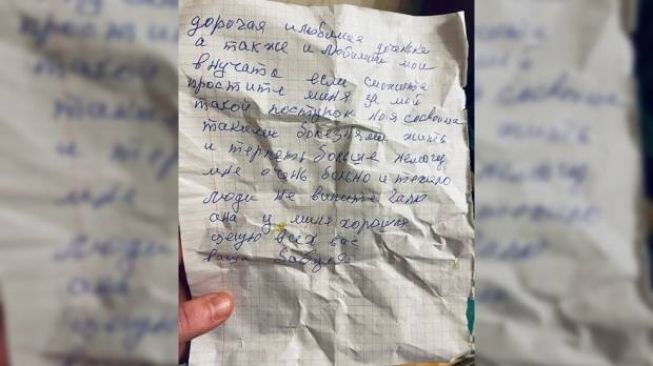 дорогая илюбимая доченька
а также и Любимые мои
внучата если сможите
простите миня за мой
такой поступок ноя сосвоими
такими болезнями жить
и терпеть больше немогу
мне очень больно и тежело
люди не вините Галю
она у миня хорошая
цюлую всех вас
ваша бабуля